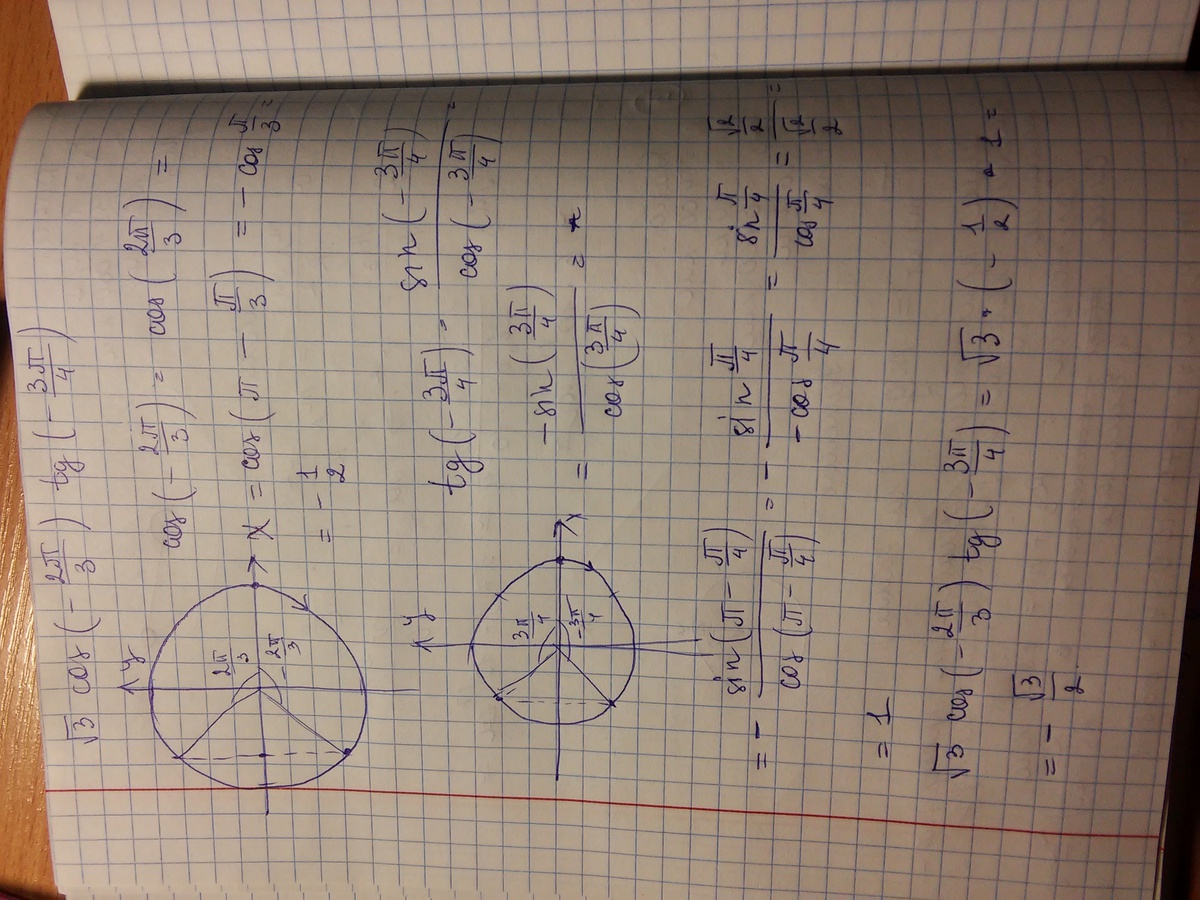 √3 cos(-2π/3) tg(-3π/4)
y
2π/3
-2π/3
x
cos(-2π/3) = cos(2π/3) =
= cos(π - π/3) = -cos π/3 =
= -1/2
y
3π/4
-3π/4
x
tg(-3π/4) = sin(-3π/4)/cos(-3π/4) =
= -sin(3π/4)/cos(3π/4) =
= - sin(π - π/4)/cos(π - π/4) = - sin π/4/-cos π/4 = sin π/4/cos π/4 = √2/2/√2/2 =
= 1
√3 cos(-2π/3) tg(-3π/4) = √3 · (-1/2) · 1 =
= - √3/2